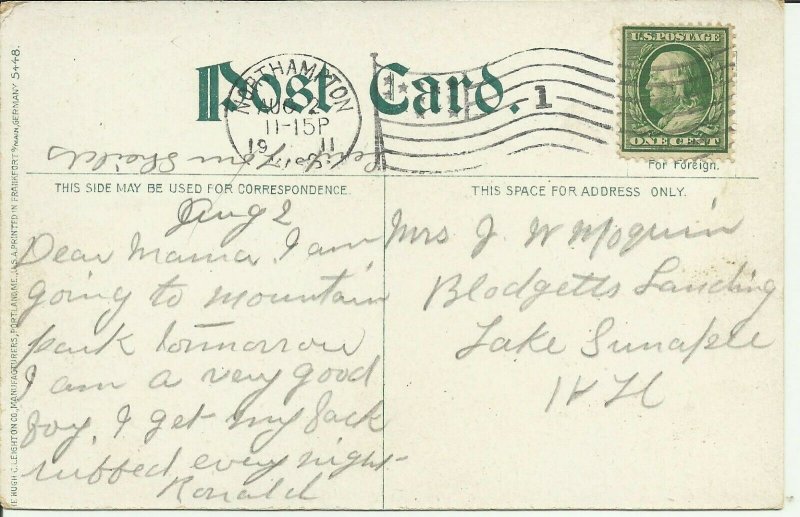 Post Card.
NORTHAMPTON
AUG 2
11-15P
1911
1
U.S. POSTAGE
ONE CENT
For Foreign.
THIS SIDE MAY BE USED FOR CORRESPONDENCE.
THIS SPACE FOR ADDRESS ONLY.
Aug 2
Dear Mama. I am
going to mountain
park tomorrow
I am a very good
boy. I get my back
rubbed every night-
Ronald
Mrs J. W Moquin
Blodgetts Landing
Lake Sunapee
N H
from Shields
HUGH C. LEIGHTON CO., MANUFACTURERS, PORTLAND, ME., U.S.A. PRINTED IN FRANKFORT a/MAIN, GERMANY 5448.